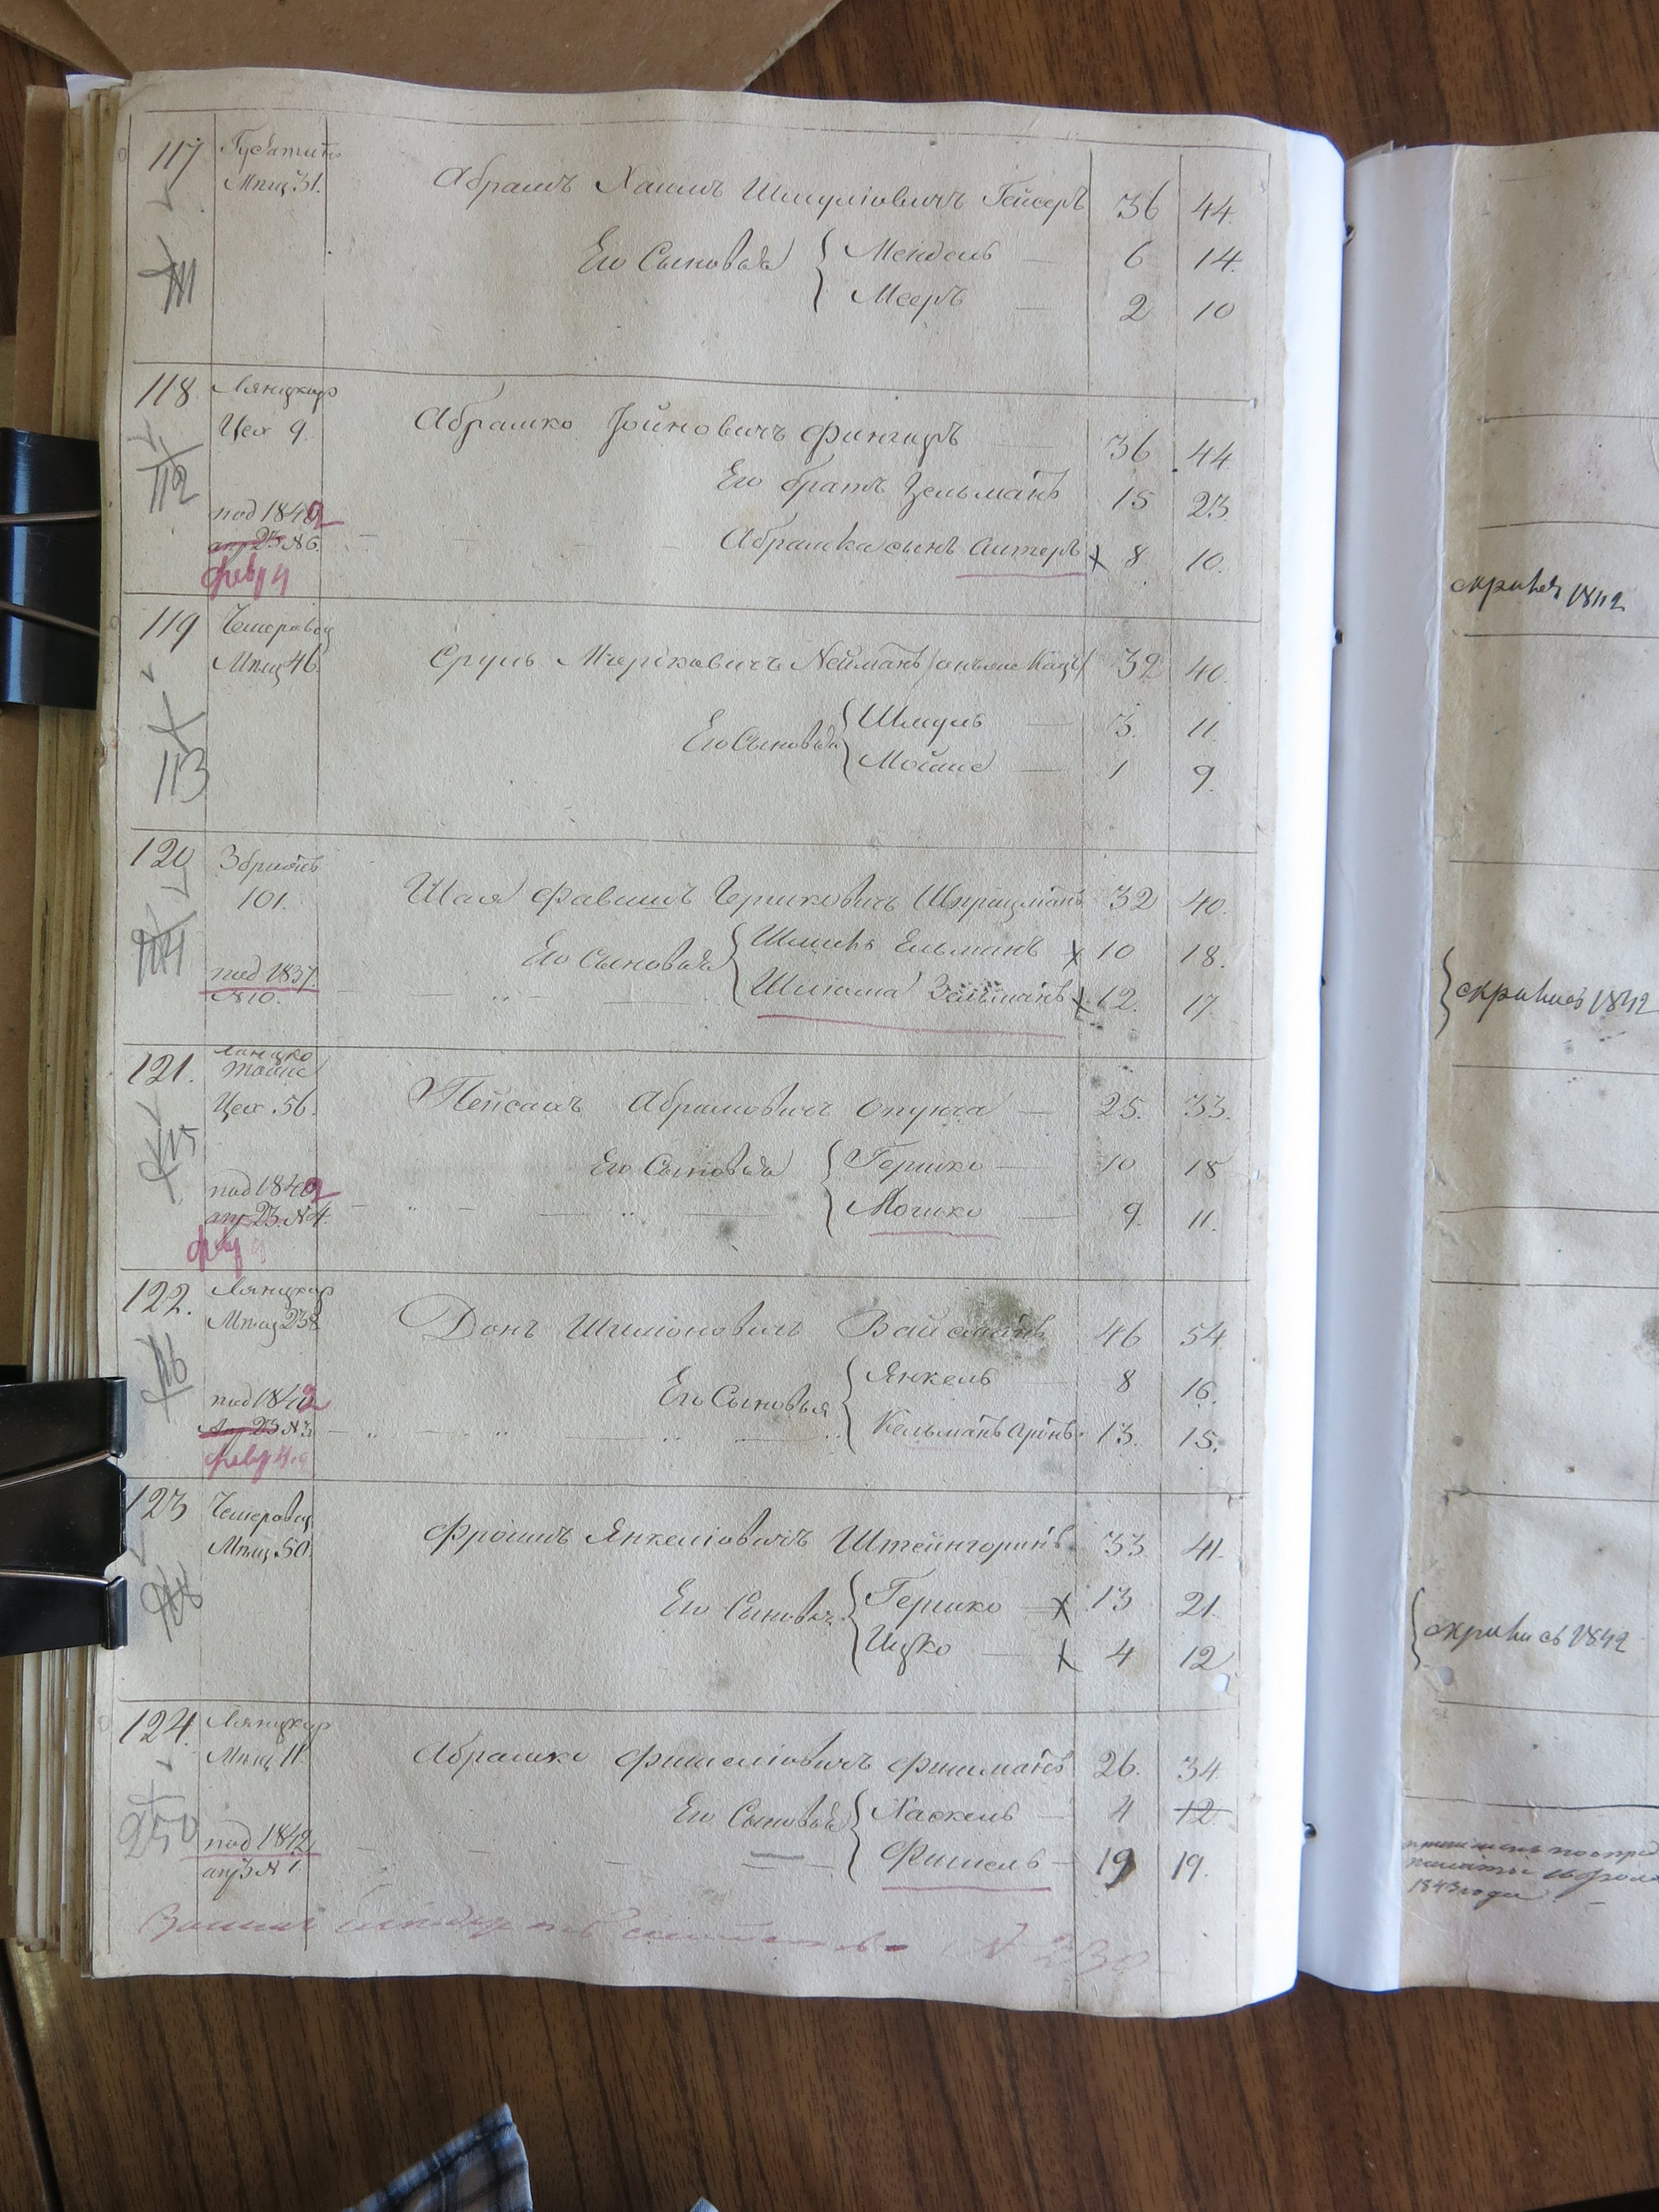 117 Губатинъ Абрамъ Хаимъ Шмуліовичъ Гейсеръ 36 44.
Мѣщ 31.
Его Сыновья { Мендель — 6 14.
Мееръ — 2 10
111
118. Лянцкор
Цех 9. Абрашко Іойновичъ Фингиръ — 36 44
Его братъ Зельманъ 15 23.
112
под 1842
апр 23 №6. Абрашка сынъ Литеръ х 8 10.
февр 4
119 Чемеровец
Мѣщ 46. Сруль Мерковичъ Нейманъ (онъ же Кацъ) 32 40.
Его Сыновья { Шмуль — 3. 11.
Мойше — 1 9.
113
120 Збрижъ
101. Шая Фавишъ Гершковичъ Шприцманъ 32 40.
Его Сыновья { Ельманъ х 10 18.
Шлiома Зельманъ х 12. 17.
114
под 1837.
№10.
121. ланцко
тоже
Цех. 56. Пейсахъ Абрамовичъ Опунга — 25. 33.
Его Сыновья { Гершко — 10 18
Мошко — 9. 11.
115
под 1842
апр 23. №4.
122. Лянцкор
Мѣщ 238 Донъ Шимоновичъ Вайсманъ 46 54.
Его Сыновья { Янкель — 8 16.
Кельманъ Аронъ. 13. 15.
116
под 1842
Апр 23 №3
февр 4.
123 Чемеровец
Мѣщ. 50. Фроимъ Янкеліовичъ Штейнгорнъ. 33. 41.
Его Сыновья { Гершко — х 13 21.
Ицко — х 4 12
124. Лянцкор
Мѣщ 11. Абрашко Фишеліовичъ Фишманъ 26. 34.
Его Сыновья { Хаскель — 4 12.
Фишель — 19 19.
250
под 1842
апр 3 № 1.
№ 230
скрылся 1842
} скрылись 1842
} скрылись 1842
1843 года